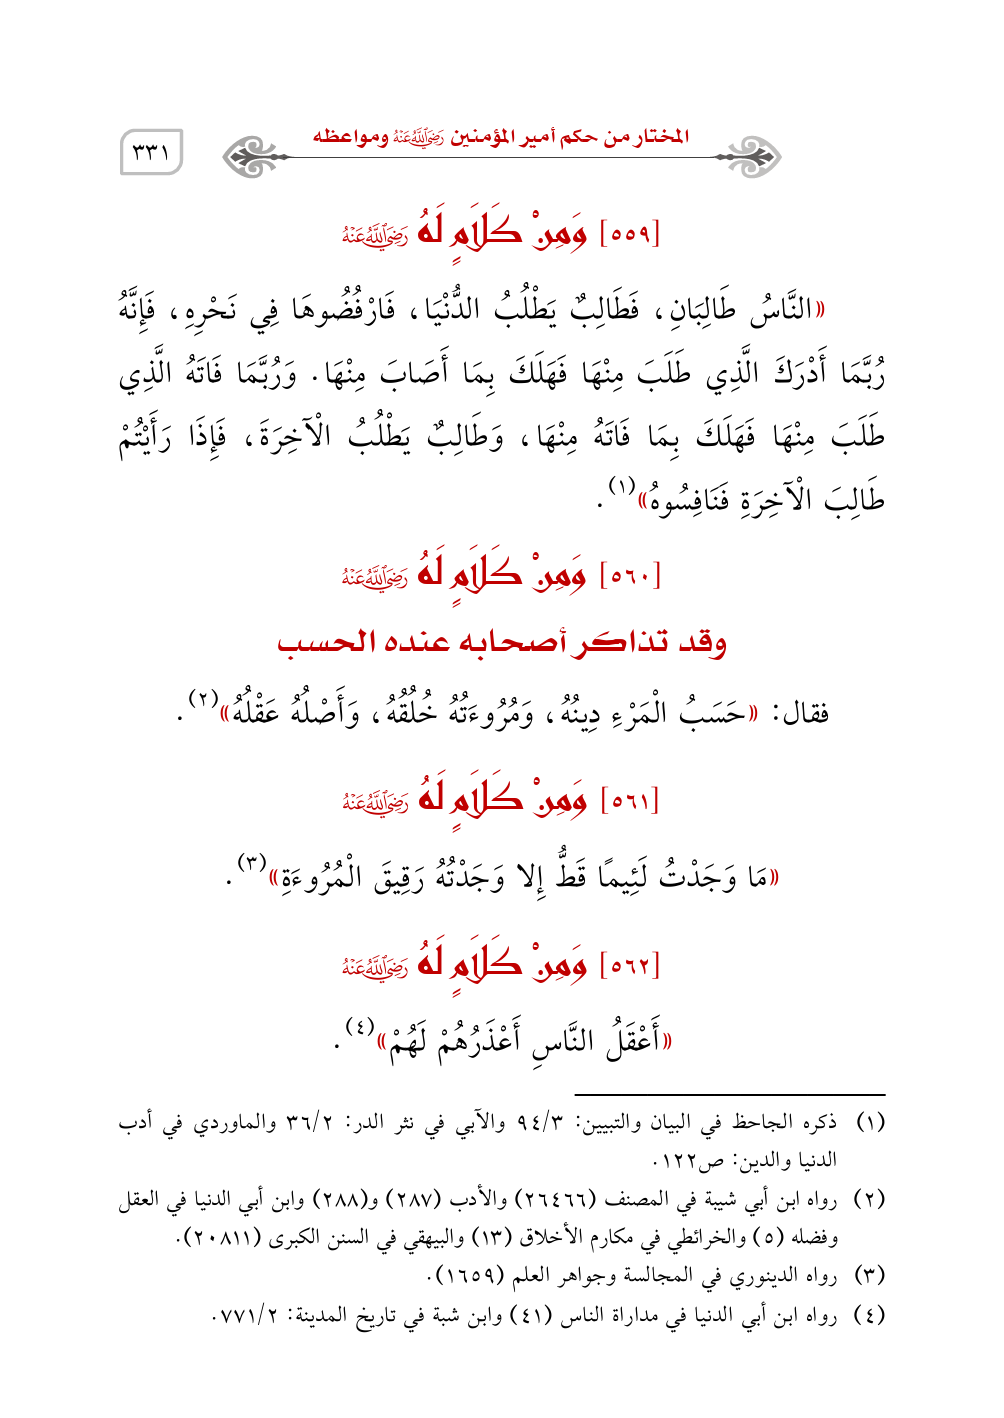 المختار من حكم أمير المؤمنين رَضِيَ اللَّهُ عَنْهُ ومواعظه
٣٣١
[٥٥٩] وَمِنْ كَلَامٍ لَهُ رَضِيَ اللَّهُ عَنْهُ
«النَّاسُ طَالِبَانِ، فَطَالِبٌ يَطْلُبُ الدُّنْيَا، فَارْفُضُوهَا فِي نَحْرِهِ، فَإِنَّهُ
رُبَّمَا أَدْرَكَ الَّذِي طَلَبَ مِنْهَا فَهَلَكَ بِمَا أَصَابَ مِنْهَا. وَرُبَّمَا فَاتَهُ الَّذِي
طَلَبَ مِنْهَا فَهَلَكَ بِمَا فَاتَهُ مِنْهَا، وَطَالِبٌ يَطْلُبُ الْآخِرَةَ، فَإِذَا رَأَيْتُمْ
طَالِبَ الْآخِرَةِ فَنَافِسُوهُ»(١).
[٥٦٠] وَمِنْ كَلَامٍ لَهُ رَضِيَ اللَّهُ عَنْهُ
وقد تذاكر أصحابه عنده الحسب
فقال: «حَسَبُ الْمَرْءِ دِينُهُ، وَمُرُوءَتُهُ خُلُقُهُ، وَأَصْلُهُ عَقْلُهُ»(٢).
[٥٦١] وَمِنْ كَلَامٍ لَهُ رَضِيَ اللَّهُ عَنْهُ
«مَا وَجَدْتُ لَئِيمًا قَطُّ إِلا وَجَدْتُهُ رَقِيقَ الْمُرُوءَةِ»(٣).
[٥٦٢] وَمِنْ كَلَامٍ لَهُ رَضِيَ اللَّهُ عَنْهُ
«أَعْقَلُ النَّاسِ أَعْذَرُهُمْ لَهُمْ»(٤).
(١) ذكره الجاحظ في البيان والتبيين: ٩٤/٣ والآبي في نثر الدر: ٣٦/٢ والماوردي في أدب
الدنيا والدين: ص١٢٢.
(٢) رواه ابن أبي شيبة في المصنف (٢٦٤٦٦) والأدب (٢٨٧) و(٢٨٨) وابن أبي الدنيا في العقل
وفضله (٥) والخرائطي في مكارم الأخلاق (١٣) والبيهقي في السنن الكبرى (٢٠٨١١).
(٣) رواه الدينوري في المجالسة وجواهر العلم (١٦٥٩).
(٤) رواه ابن أبي الدنيا في مداراة الناس (٤١) وابن شبة في تاريخ المدينة: ٧٧١/٢.